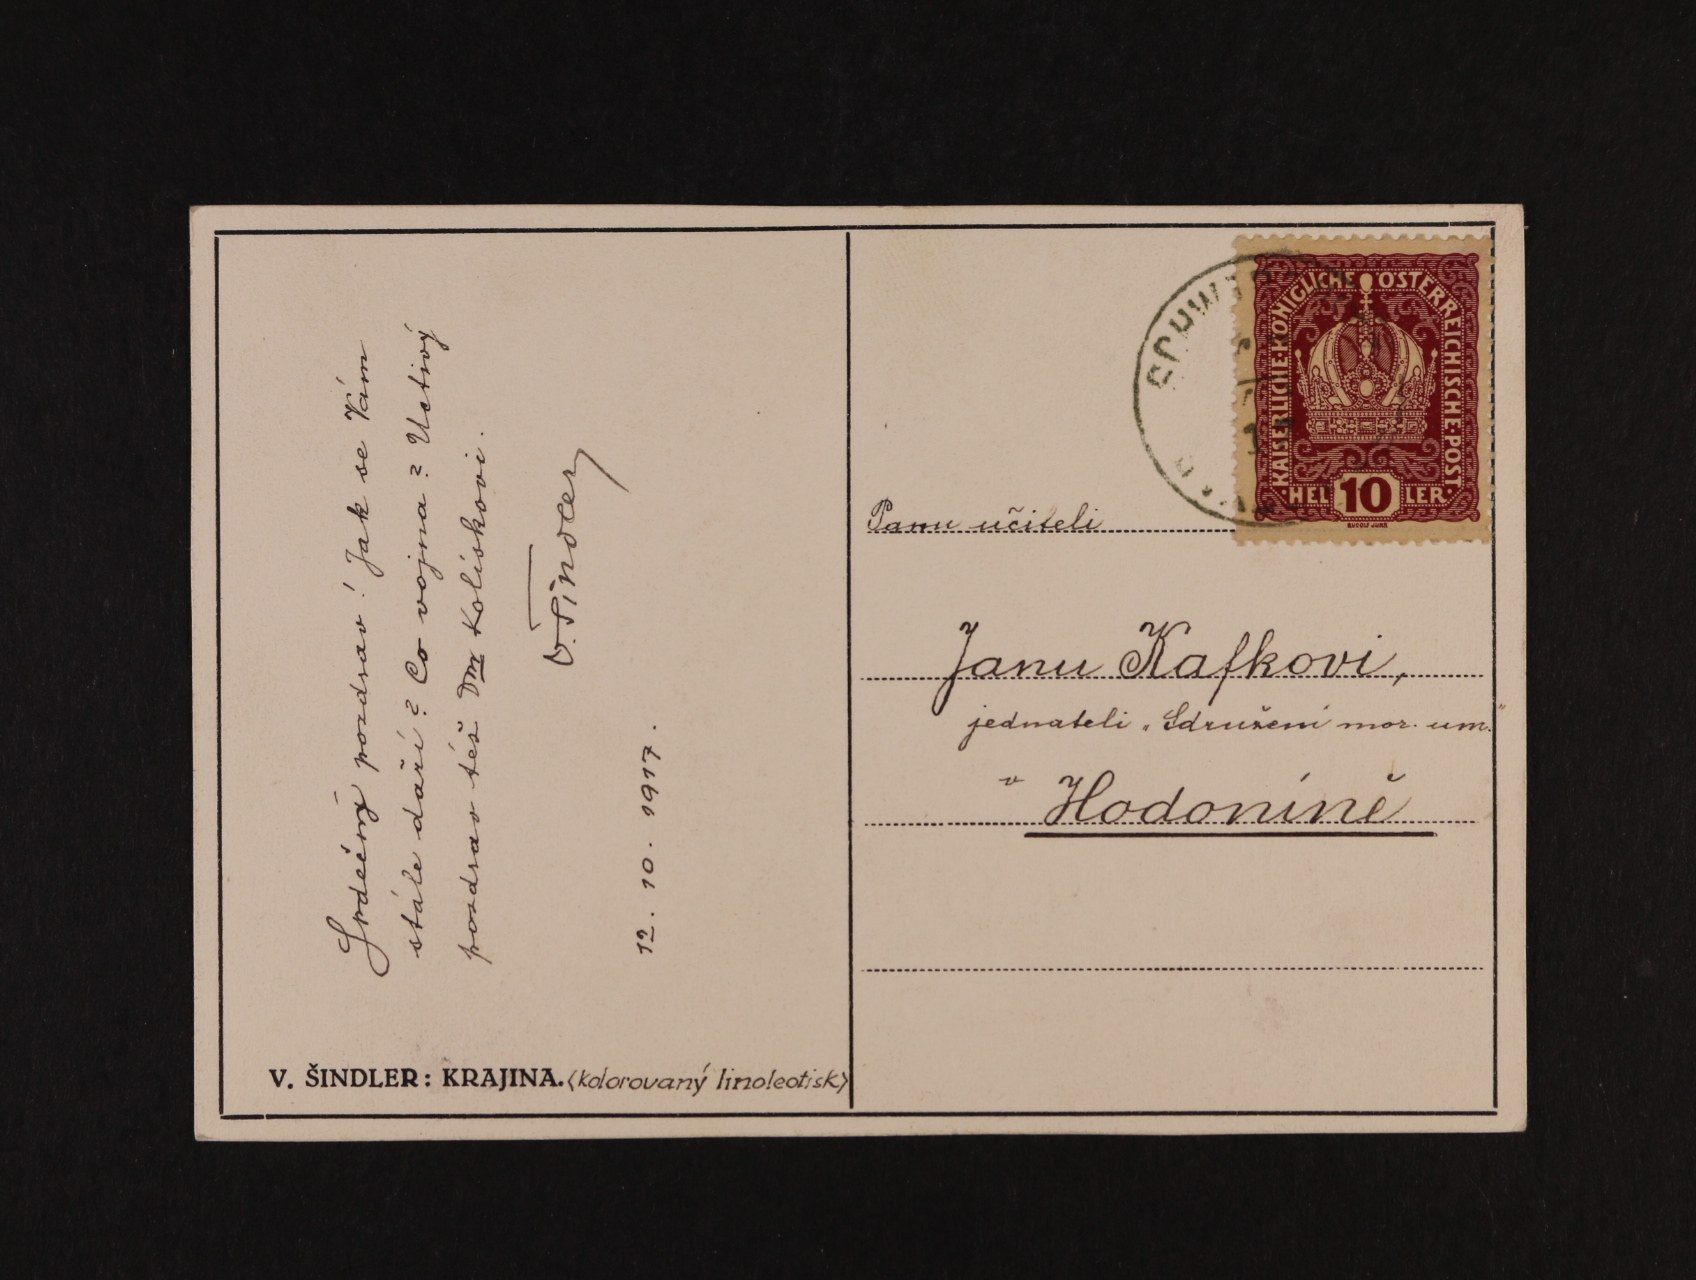 Srdečný pozdrav! Jak se Vám
stále daří? Co vojna? Uctivý
pozdrav též Dru Kolískovi.
V. Šindler
12. 10. 1917.
V. ŠINDLER: KRAJINA. (kolorovaný linoleotisk)
KAISERLICHE·KÖNIGLICHE ÖSTERREICHISCHE·POST
HEL 10 LER
RUDOLF JUNK
Panu učiteli
Janu Kafkovi,
jednateli „Sdružení mor. um."
v Hodoníně